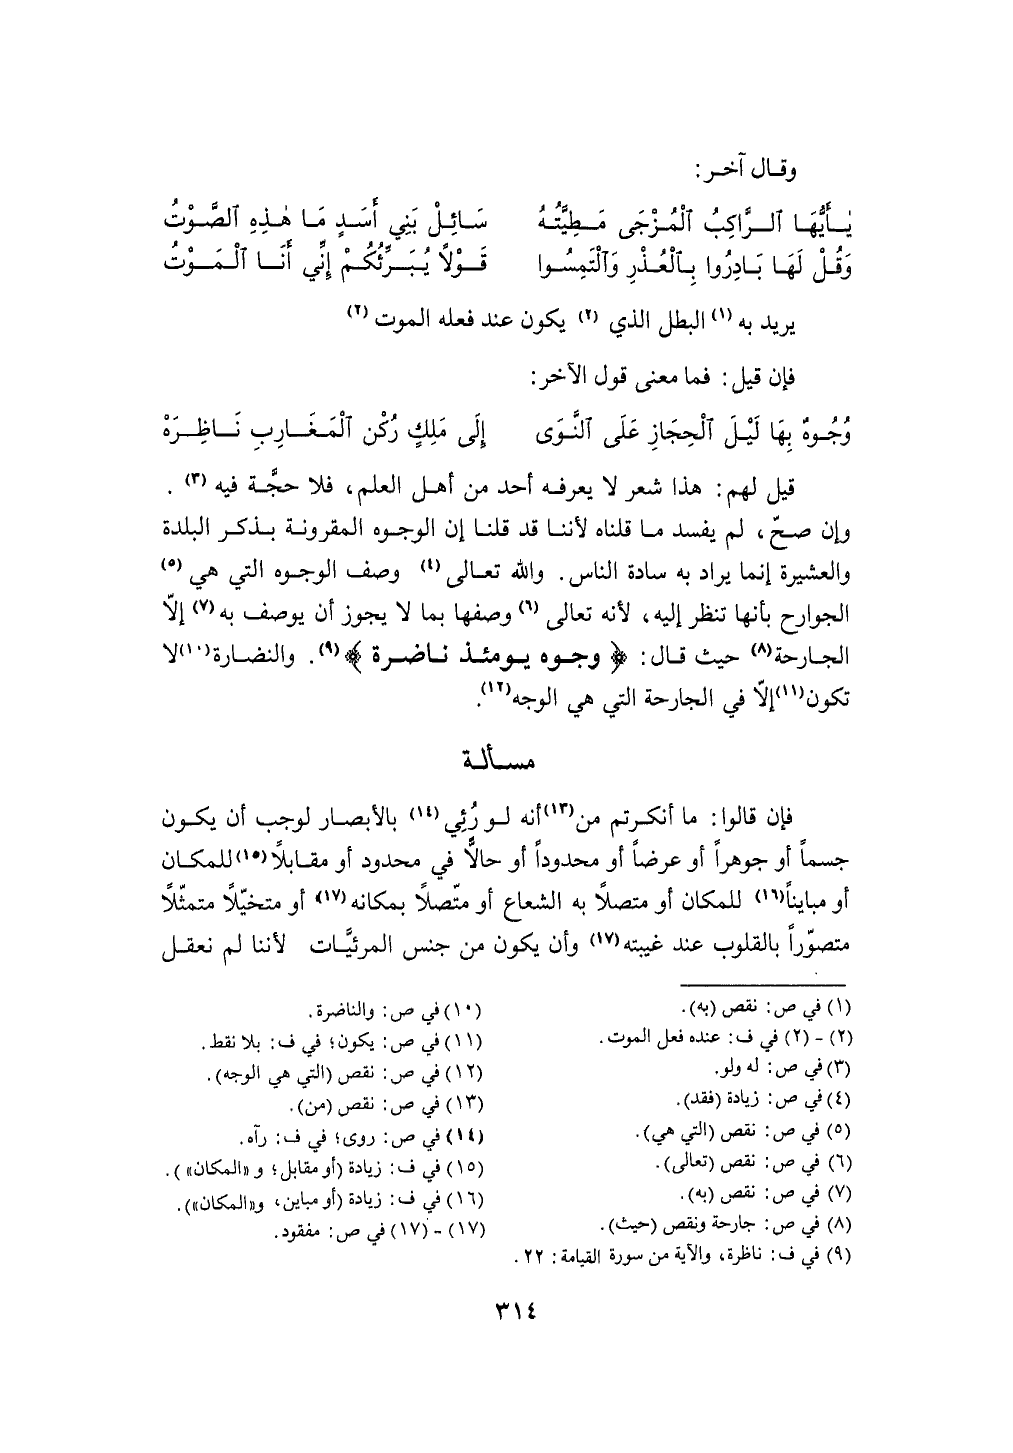 وقال آخر:
يَـٰأَيُّهَا ٱلرَّاكِبُ ٱلْمُزْجَى مَطِيَّتُهُ سَائِلْ بَنِي أَسَدٍ مَا هٰذِهِ ٱلصَّوْتُ
وَقُلْ لَهَا بَادِرُوا بِٱلْعُذْرِ وَٱلْتَمِسُوا قَوْلاً يُبَرِّئُكُمْ إِنِّي أَنَا ٱلْمَوْتُ
يريد به (١) البطل الذي (٢) يكون عند فعله الموت (٢)
فإن قيل: فما معنى قول الآخر:
وُجُوهٌ بِهَا لَيْلَ ٱلْحِجَازِ عَلَى ٱلنَّوَى إِلَى مَلِكٍ رُكْنِ ٱلْمَغَارِبِ نَاظِرَهْ
قيل لهم: هذا شعر لا يعرفه أحد من أهل العلم، فلا حجَّة فيه (٣) .
وإن صحّ، لم يفسد ما قلناه لأننا قد قلنا إن الوجوه المقرونة بذكر البلدة
والعشيرة إنما يراد به سادة الناس. والله تعالى (٤) وصف الوجوه التي هي (٥)
الجوارح بأنها تنظر إليه، لأنه تعالى (٦) وصفها بما لا يجوز أن يوصف به (٧) إلاّ
الجارحة (٨) حيث قال: ﴿ وجوه يومئذ ناضرة ﴾ (٩). والنضارة (١٠) لا
تكون (١١) إلاّ في الجارحة التي هي الوجه (١٢).
مسألة
فإن قالوا: ما أنكرتم من (١٣) أنه لو رُئِي (١٤) بالأبصار لوجب أن يكون
جسماً أو جوهراً أو عرضاً أو محدوداً أو حالاًّ في محدود أو مقابلاً (١٥) للمكان
أو مبايناً (١٦) للمكان أو متصلاً به الشعاع أو متّصلاً بمكانه (١٧) أو متخيّلاً متمثّلاً
متصوّراً بالقلوب عند غيبته (١٧) وأن يكون من جنس المرئيَّات لأننا لم نعقل
(١) في ص: نقص (به).
(٢) - (٢) في ف: عنده فعل الموت.
(٣) في ص: له ولو.
(٤) في ص: زيادة (فقد).
(٥) في ص: نقص (التي هي).
(٦) في ص: نقص (تعالى).
(٧) في ص: نقص (به).
(٨) في ص: جارحة ونقص (حيث).
(٩) في ف: ناظرة، والآية من سورة القيامة: ٢٢ .
(١٠) في ص: والناضرة.
(١١) في ص: يكون؛ في ف: بلا نقط.
(١٢) في ص: نقص (التي هي الوجه).
(١٣) في ص: نقص (من).
(١٤) في ص: روى؛ في ف: رآه.
(١٥) في ف: زيادة (أو مقابل؛ و «المكان» ).
(١٦) في ف: زيادة (أو مباين، و«المكان»).
(١٧) - (١٧) في ص: مفقود.
٣١٤